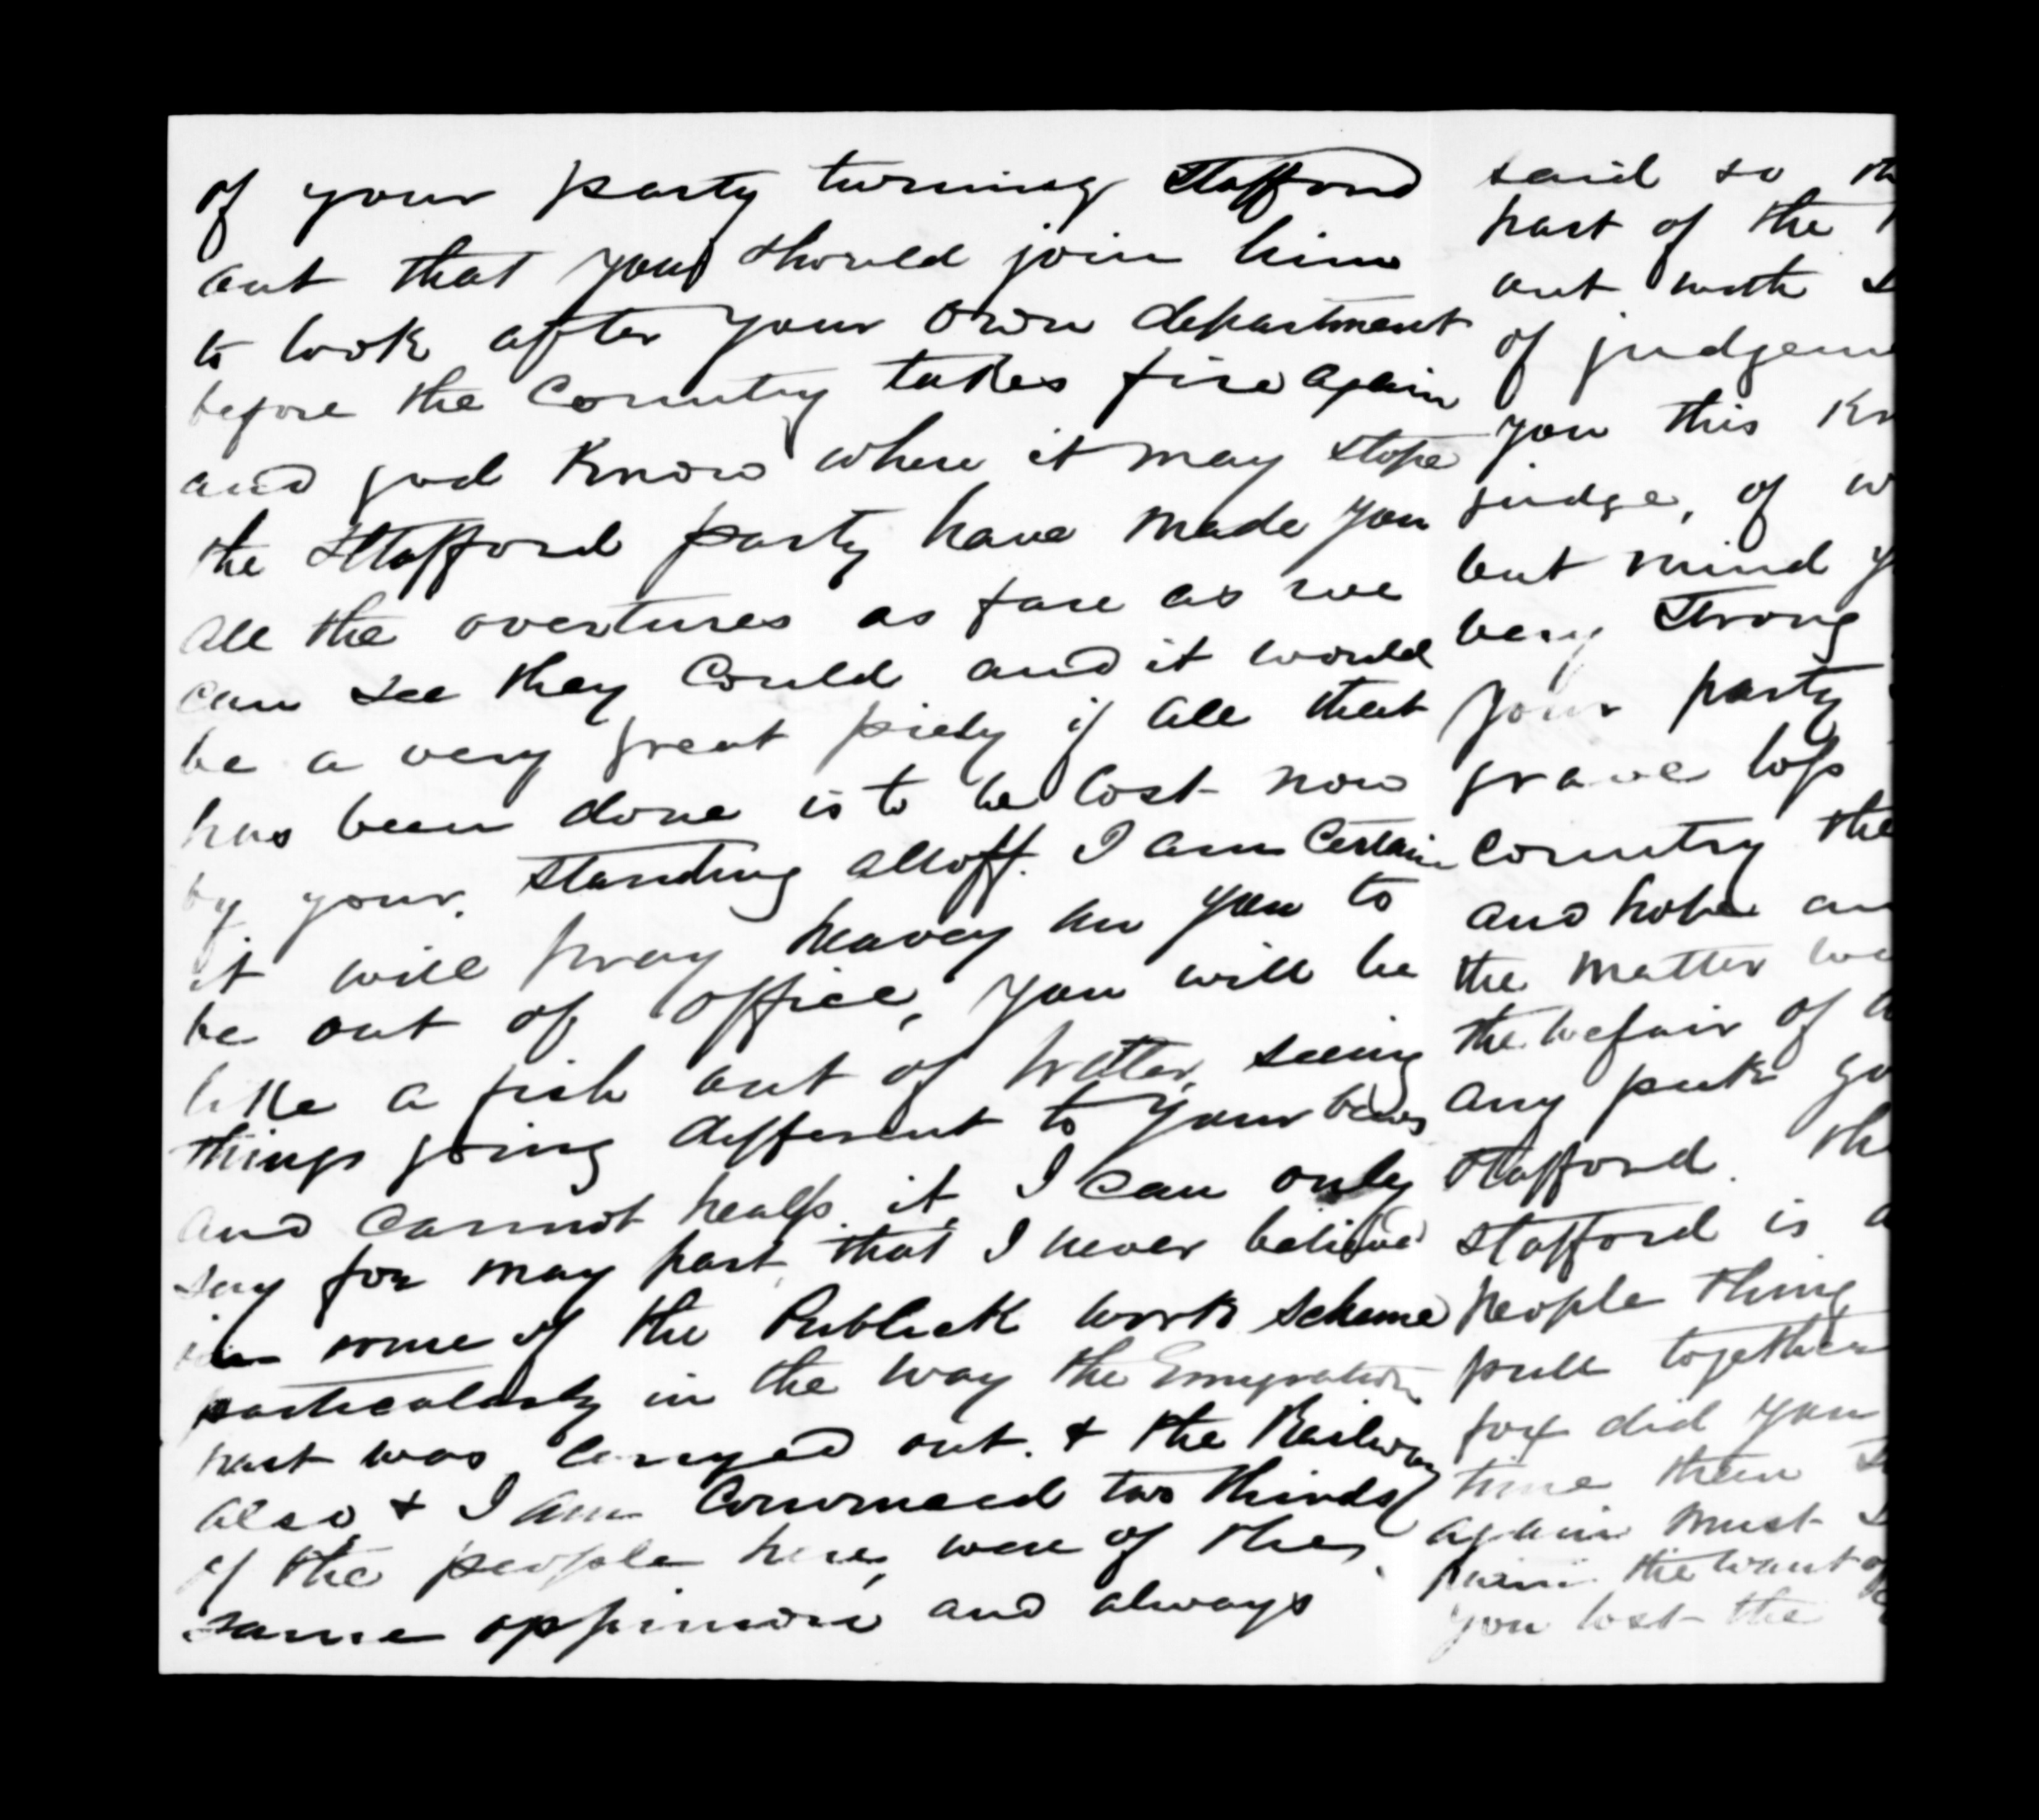 of your party turning Stafford
out that you should join him
to look after your own department
before the Country takes fire again
and god Know where it may stope
the Stafford party have made you
all the overtures as fare as we
can see they Could and it would
be a very great piety if all that
has been done is to be lost now
by your. standing alloff. I am Certain
it will pray heavey on you to
be out of office, you will be
like a fish out of watter, seeing
things going different to your
and cannot healp it, I can only
say for may part, that I never believe
in some of the Publick works scheme
particularly in the way the Emigration
part was out. & the Railway
also, & I am two thirds
of the people here, were of the
same oppinion and always
said so
part of the
out with
of
you this
judge, of
but mind
very strong
your party
grave loss
Country the
and hope
the matter
the of
any
Stafford.
Stafford is
people thing
pull together
fox did you
time then
again must
the want of
you lost the